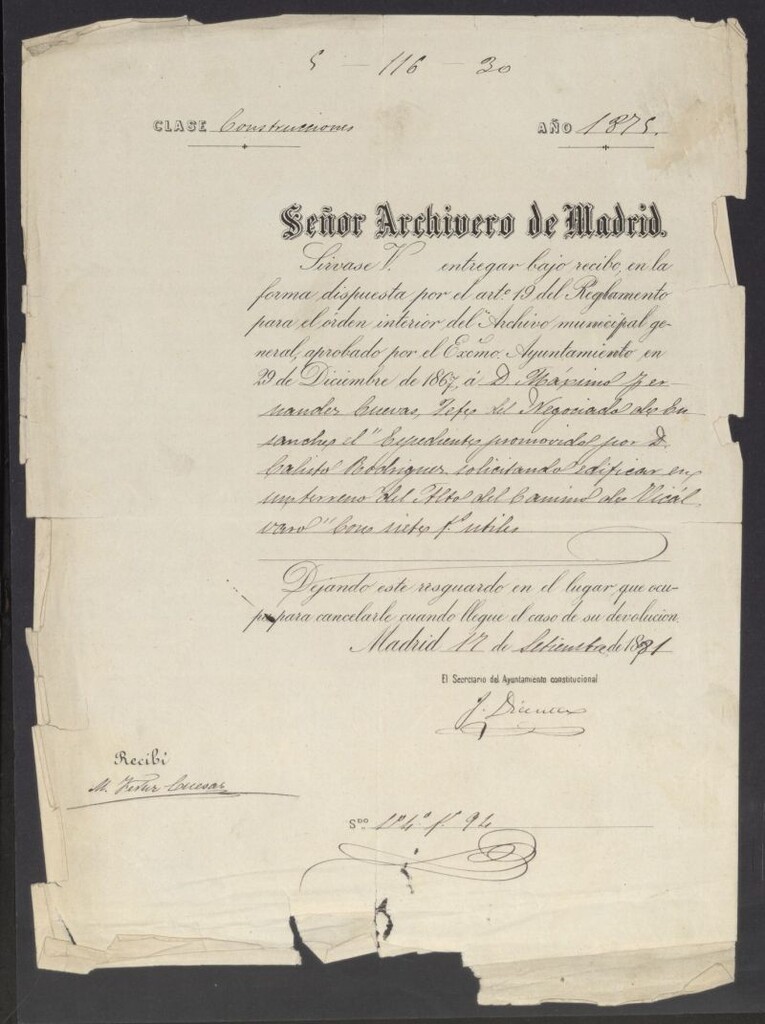 5 — 116 — 30
CLASE Construcciones
AÑO 1875.
Señor Archivero de Madrid.
Sirvase V. entregar bajo recibo, en la
forma dispuesta por el artº 19 del Reglamento
para el órden interior del Archivo municipal ge-
neral, aprobado por el Excmo. Ayuntamiento en
29 de Diciembre de 1867, á D. Máximo Fer
nandez Cuevas, Jefe del Negociado de En
sanche el "Expediente promovido por D.
Calisto Rodriguez solicitando edificar en
un terreno del Alto del Camino de Vicál
varo" Con siete fs utiles
Dejando este resguardo en el lugar que ocu-
pa para cancelarle cuando llegue el caso de su devolucion.
Madrid 17 de Setiembre de 1881
El Secretario del Ayuntamiento constitucional
J. Dicenta
Recibí
M. Cuevas
SDO. 1º 4º fº 94